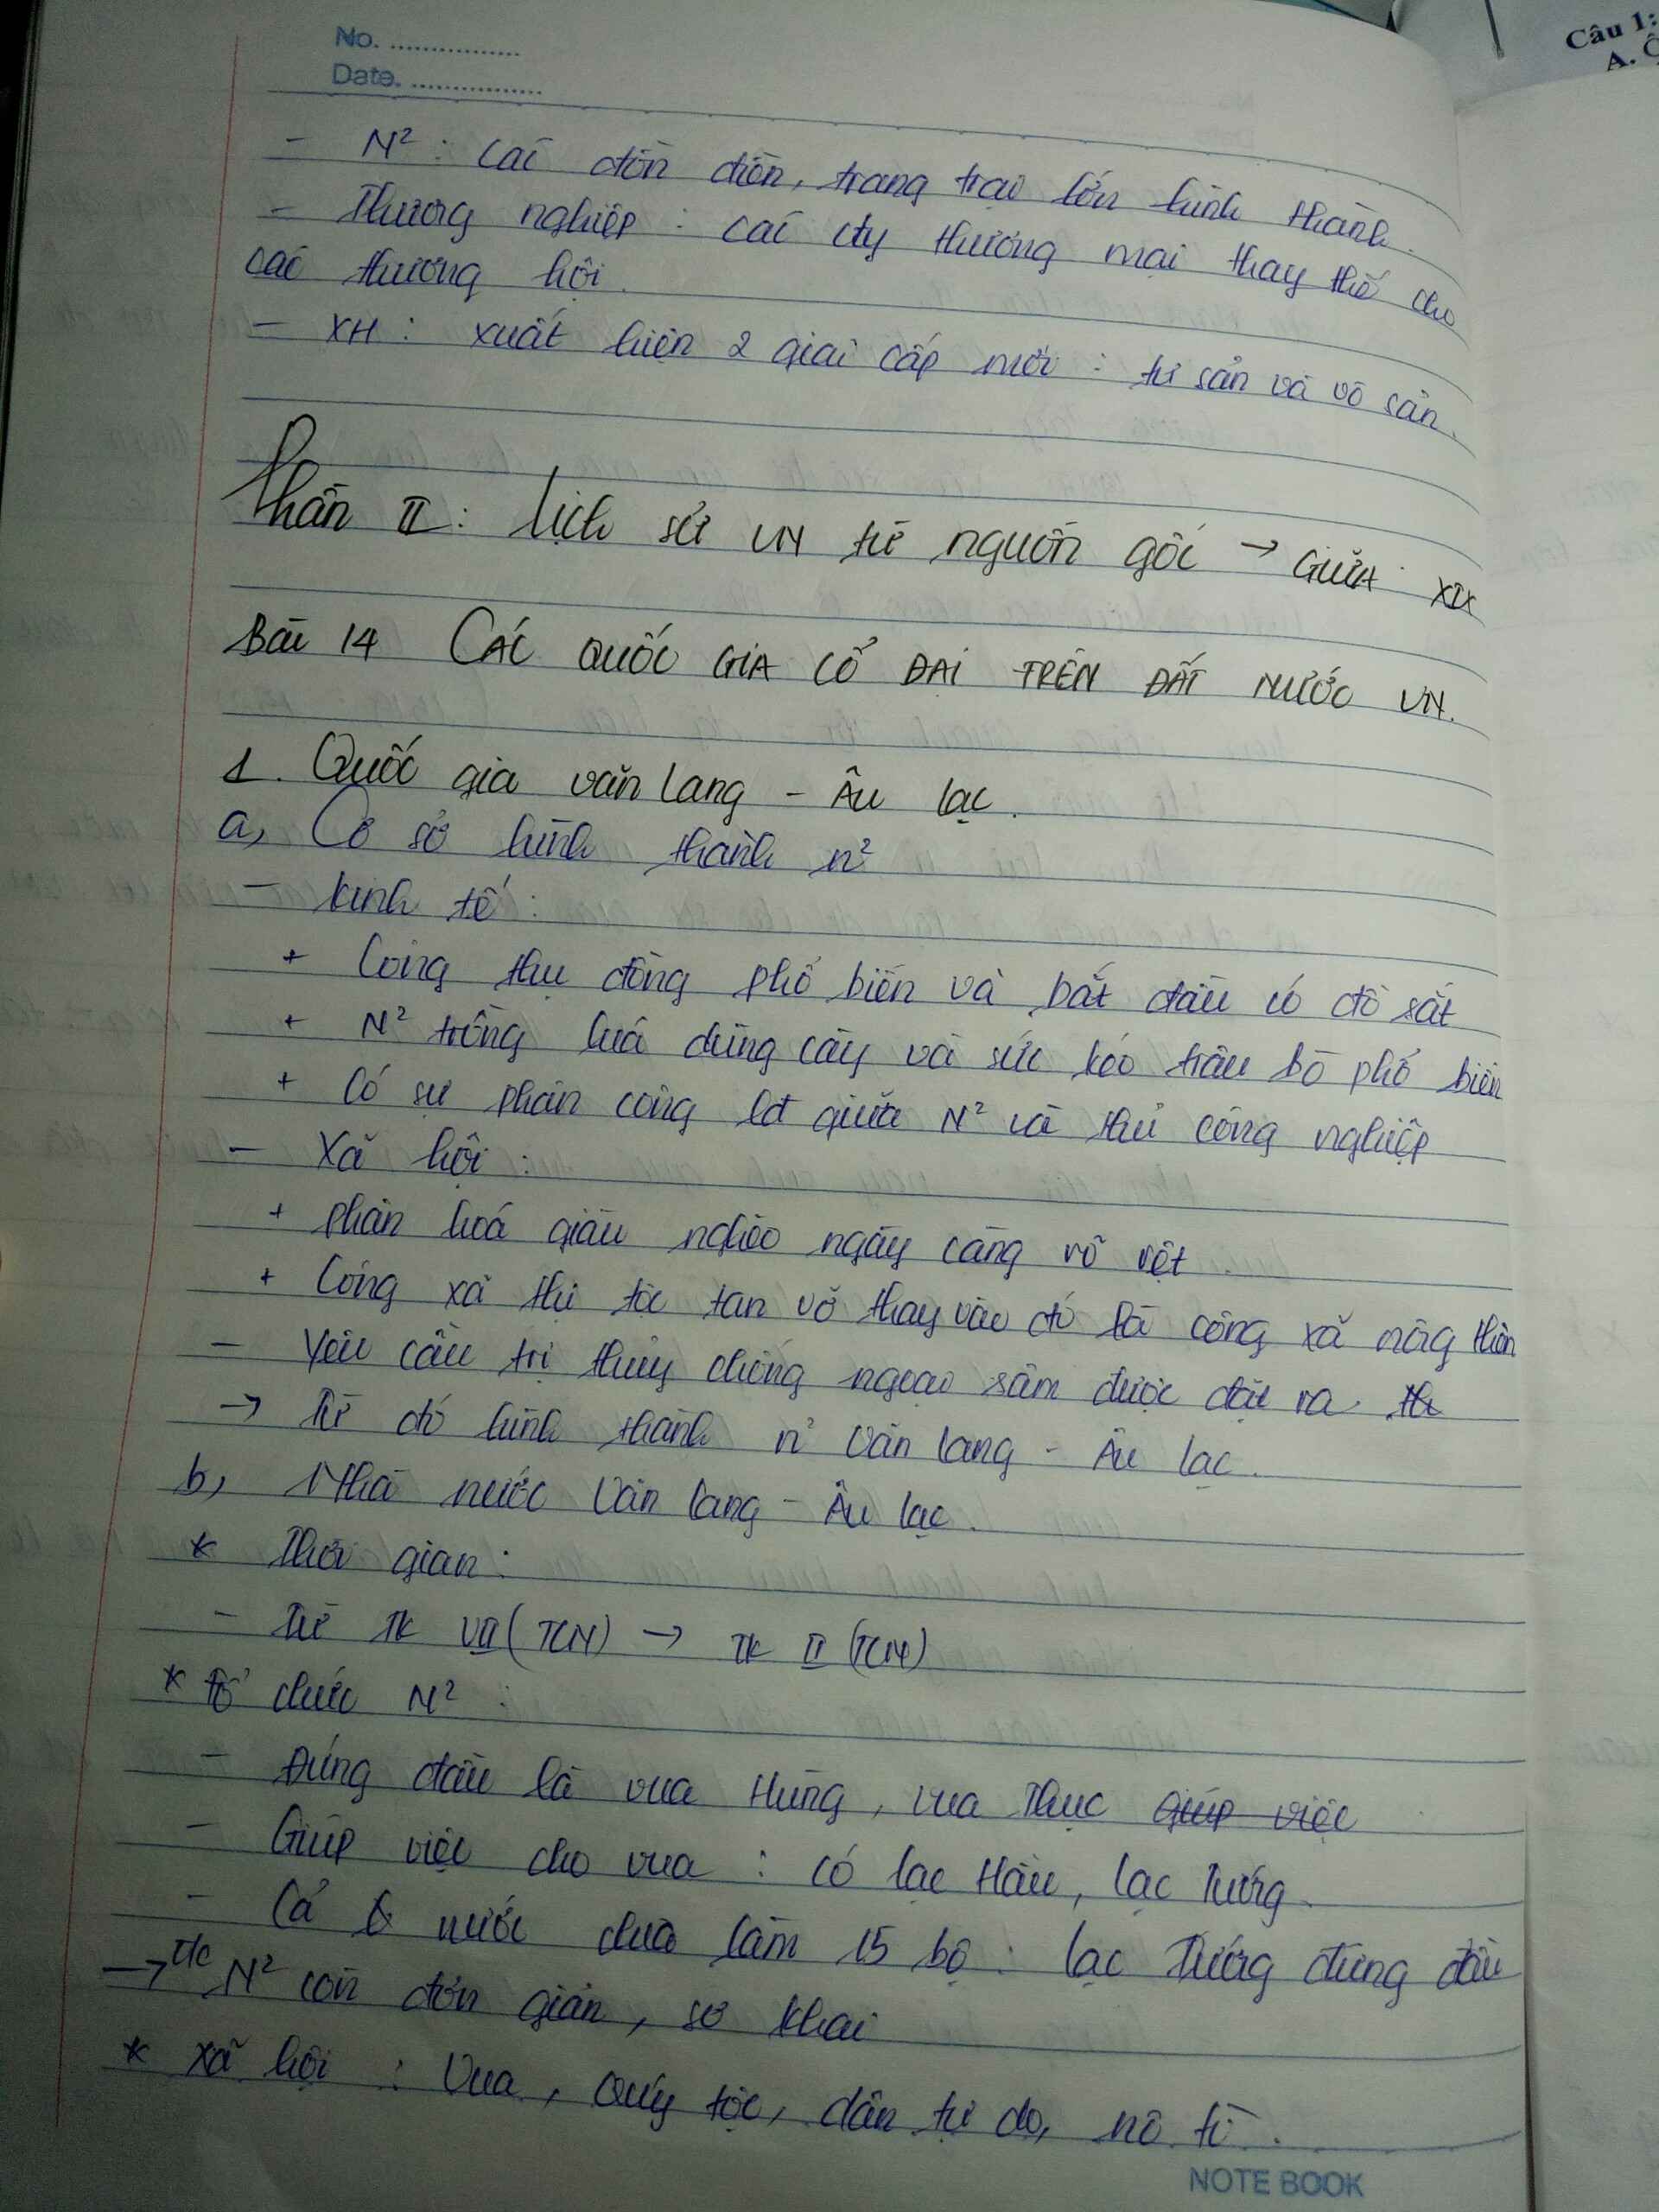 No. ................
Date. ................
Câu 1:
A.
- N² : Các đồn điền, trang trại lớn hình thành.
- Thương nghiệp : các cty thương mại thay thế cho
các thương hội.
- XH : xuất hiện 2 giai cấp mới : tư sản và vô sản.
Phần II : Lịch sử VN từ nguồn gốc → GIỮA XIX
Bài 14 CÁC QUỐC GIA CỔ ĐẠI TRÊN ĐẤT NƯỚC VN.
1. Quốc gia văn Lang - Âu lạc.
a, Cơ sở hình thành n²
- kinh tế :
+ Công thụ đồng phổ biến và bắt đầu có đồ sắt
+ N² trồng luá dùng cày và sức kéo trâu bò phổ biến
+ Có sự phân công lđ giữa N² và thủ công nghiệp
- Xã hội :
+ phân hoá giàu nghèo ngày càng rõ rệt.
+ Công xã thị tộc tan vỡ thay vào đó là công xã nông thôn
- Yêu cầu trị thủy chống ngoại xâm được đặt ra.
→ Từ đó hình thành n² Văn lang - Âu lạc.
b, Nhà nước Văn lang - Âu lạc.
* Thời gian :
- Từ TK VII (TCN) → TK II (TCN)
* tổ chức N² :
- Đứng đầu là vua Hùng, vua Thục giúp việc
- Giúp việc cho vua : có lạc Hầu, lạc Tướng.
- Cả nước chia làm 15 bộ : lạc Tướng đứng đầu
→ t/c N² còn đơn giản, sơ khai
* Xã hội : Vua, Quý tộc, dân tự do, nô tì.
NOTE BOOK